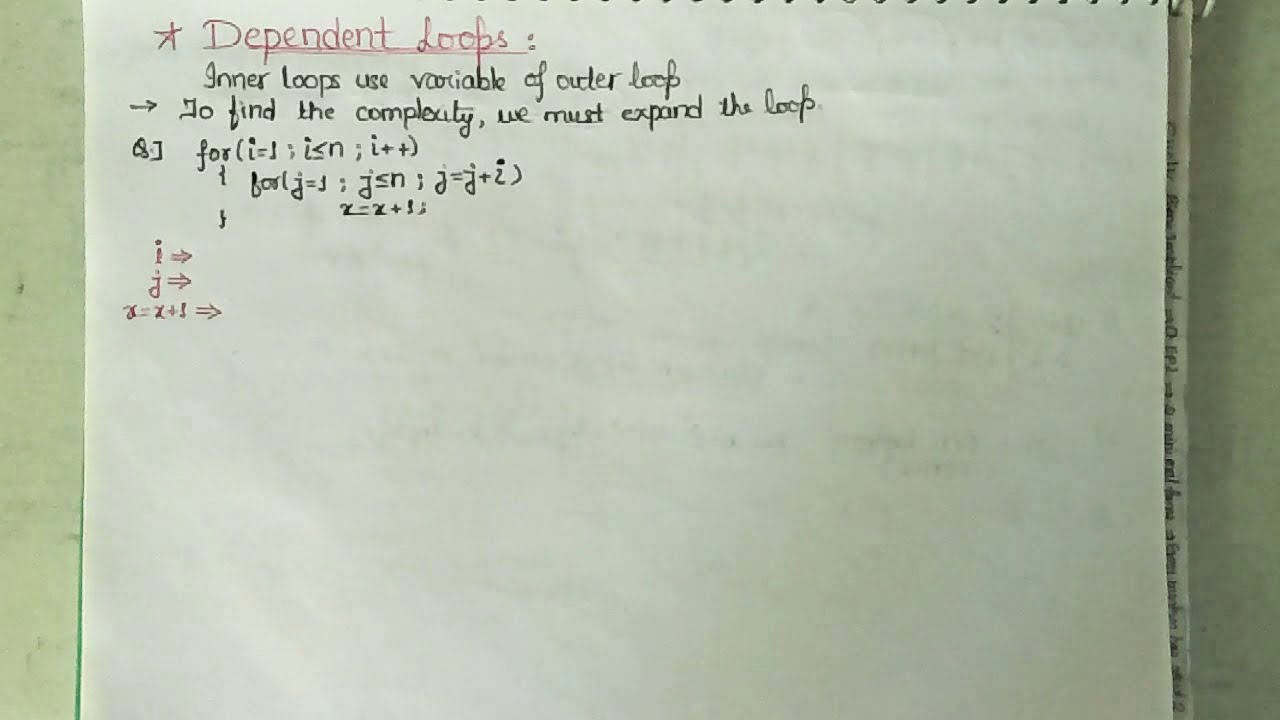 * Dependent Loops :
Inner loops use variable of outer loop
→ To find the complexity, we must expand the loop.
Q] for(i=1 ; i≤n ; i++)
{ for(j=1 ; j≤n ; j=j+i)
x=x+1;
}
i ⇒
j ⇒
x=x+1 ⇒